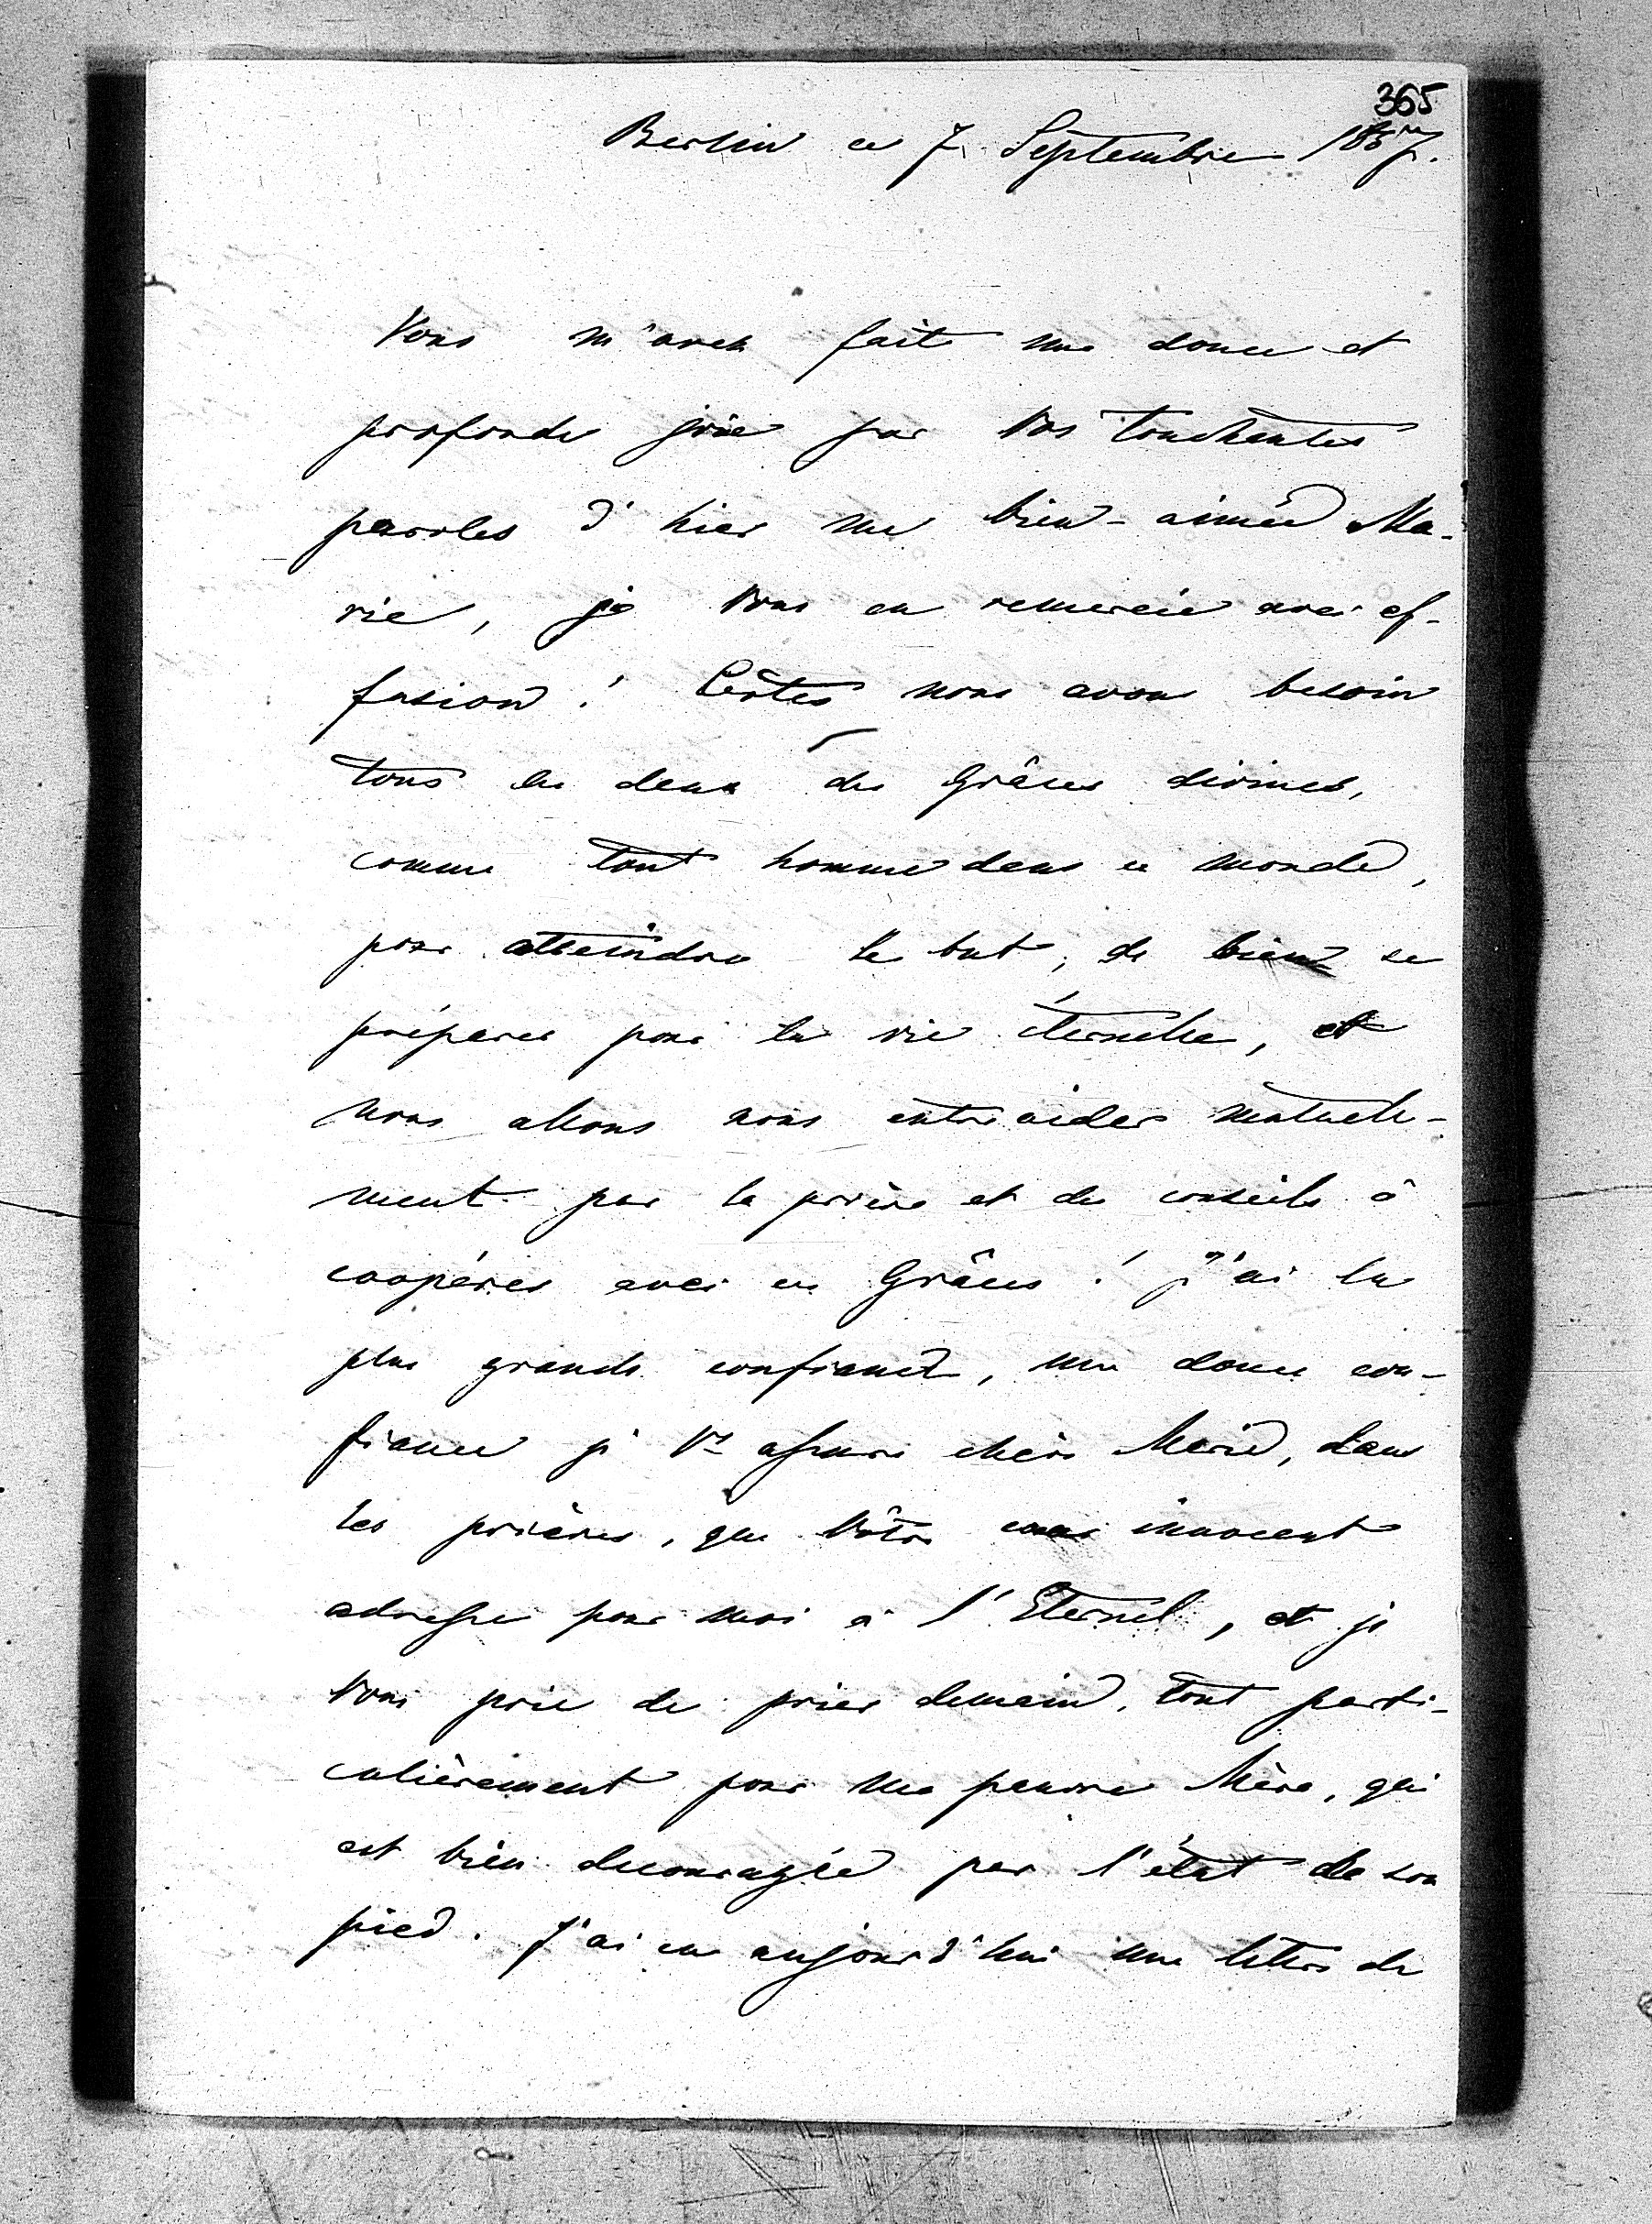 365
Berlin ce 7 Septembre 1857.
Vous m'avez fait une douce et
profonde joie par Vos touchantes
paroles d'hier ma bien-aimée Ma-
rie, je Vous en remercie avec ef-
fusion! Certes nous avons besoin
tous les deux des Grâces divines,
comme tout homme dans ce monde,
pour atteindre le but, de bien se
préparer pour la vie éternelle, et
nous allons nous entre aider mutuelle-
ment par la prière et des conseils à
coopérer avec ces Grâces! J'ai la
plus grande confiance, une douce con-
fiance je Vs assure chère Marie, dans
les prières, que Vôtre cœur innocent
adresse pour moi à l'Eternel, et je
Vous prie de prier demain, tout parti-
culièrement pour ma pauvre Mère, qui
est bien decouragée par l'état de son
pied. J'ai eu aujourd'hui une lettre de